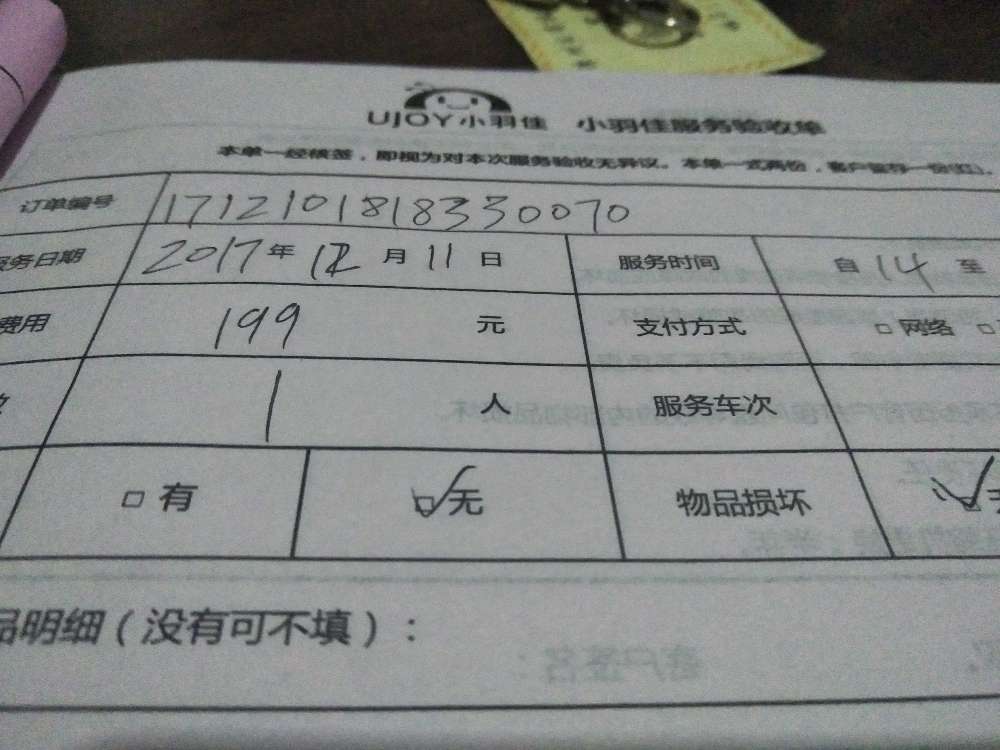 UJOY小羽佳 小羽佳服务验收单
本单一经核签，即视为对本次服务验收无异议。本单一式两份，客户留存一份(红)。
订单编号 171210181833 0070
服务日期 2017年 12月 11日 服务时间 自14至
费用 199 元 支付方式 □网络 □
1 人 服务车次
□有 ☑无 物品损坏 ☑
品明细（没有可不填）：
客户签名：